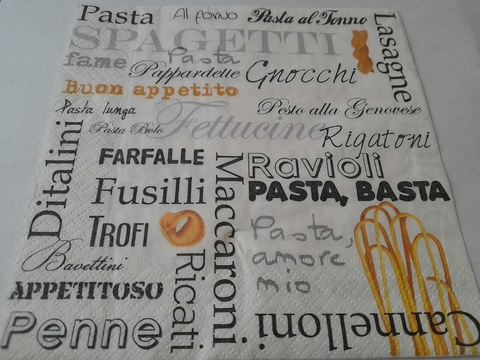 Pasta
Al forno
Pasta al Tonno
SPAGETTI
Lasagne
fame
Pasta
Pappardelle
Gnocchi
Buon appetito
Pasta lunga
Pesto alla Genovese
Pasta Bolo
Fettucine
Rigatoni
Ditalini
FARFALLE
Ravioli
Fusilli
PASTA, BASTA
Maccaroni
TROFI
Pasta,
amore
mio
Bavettini
Ricati
APPETITOSO
Penne
Cannelloni